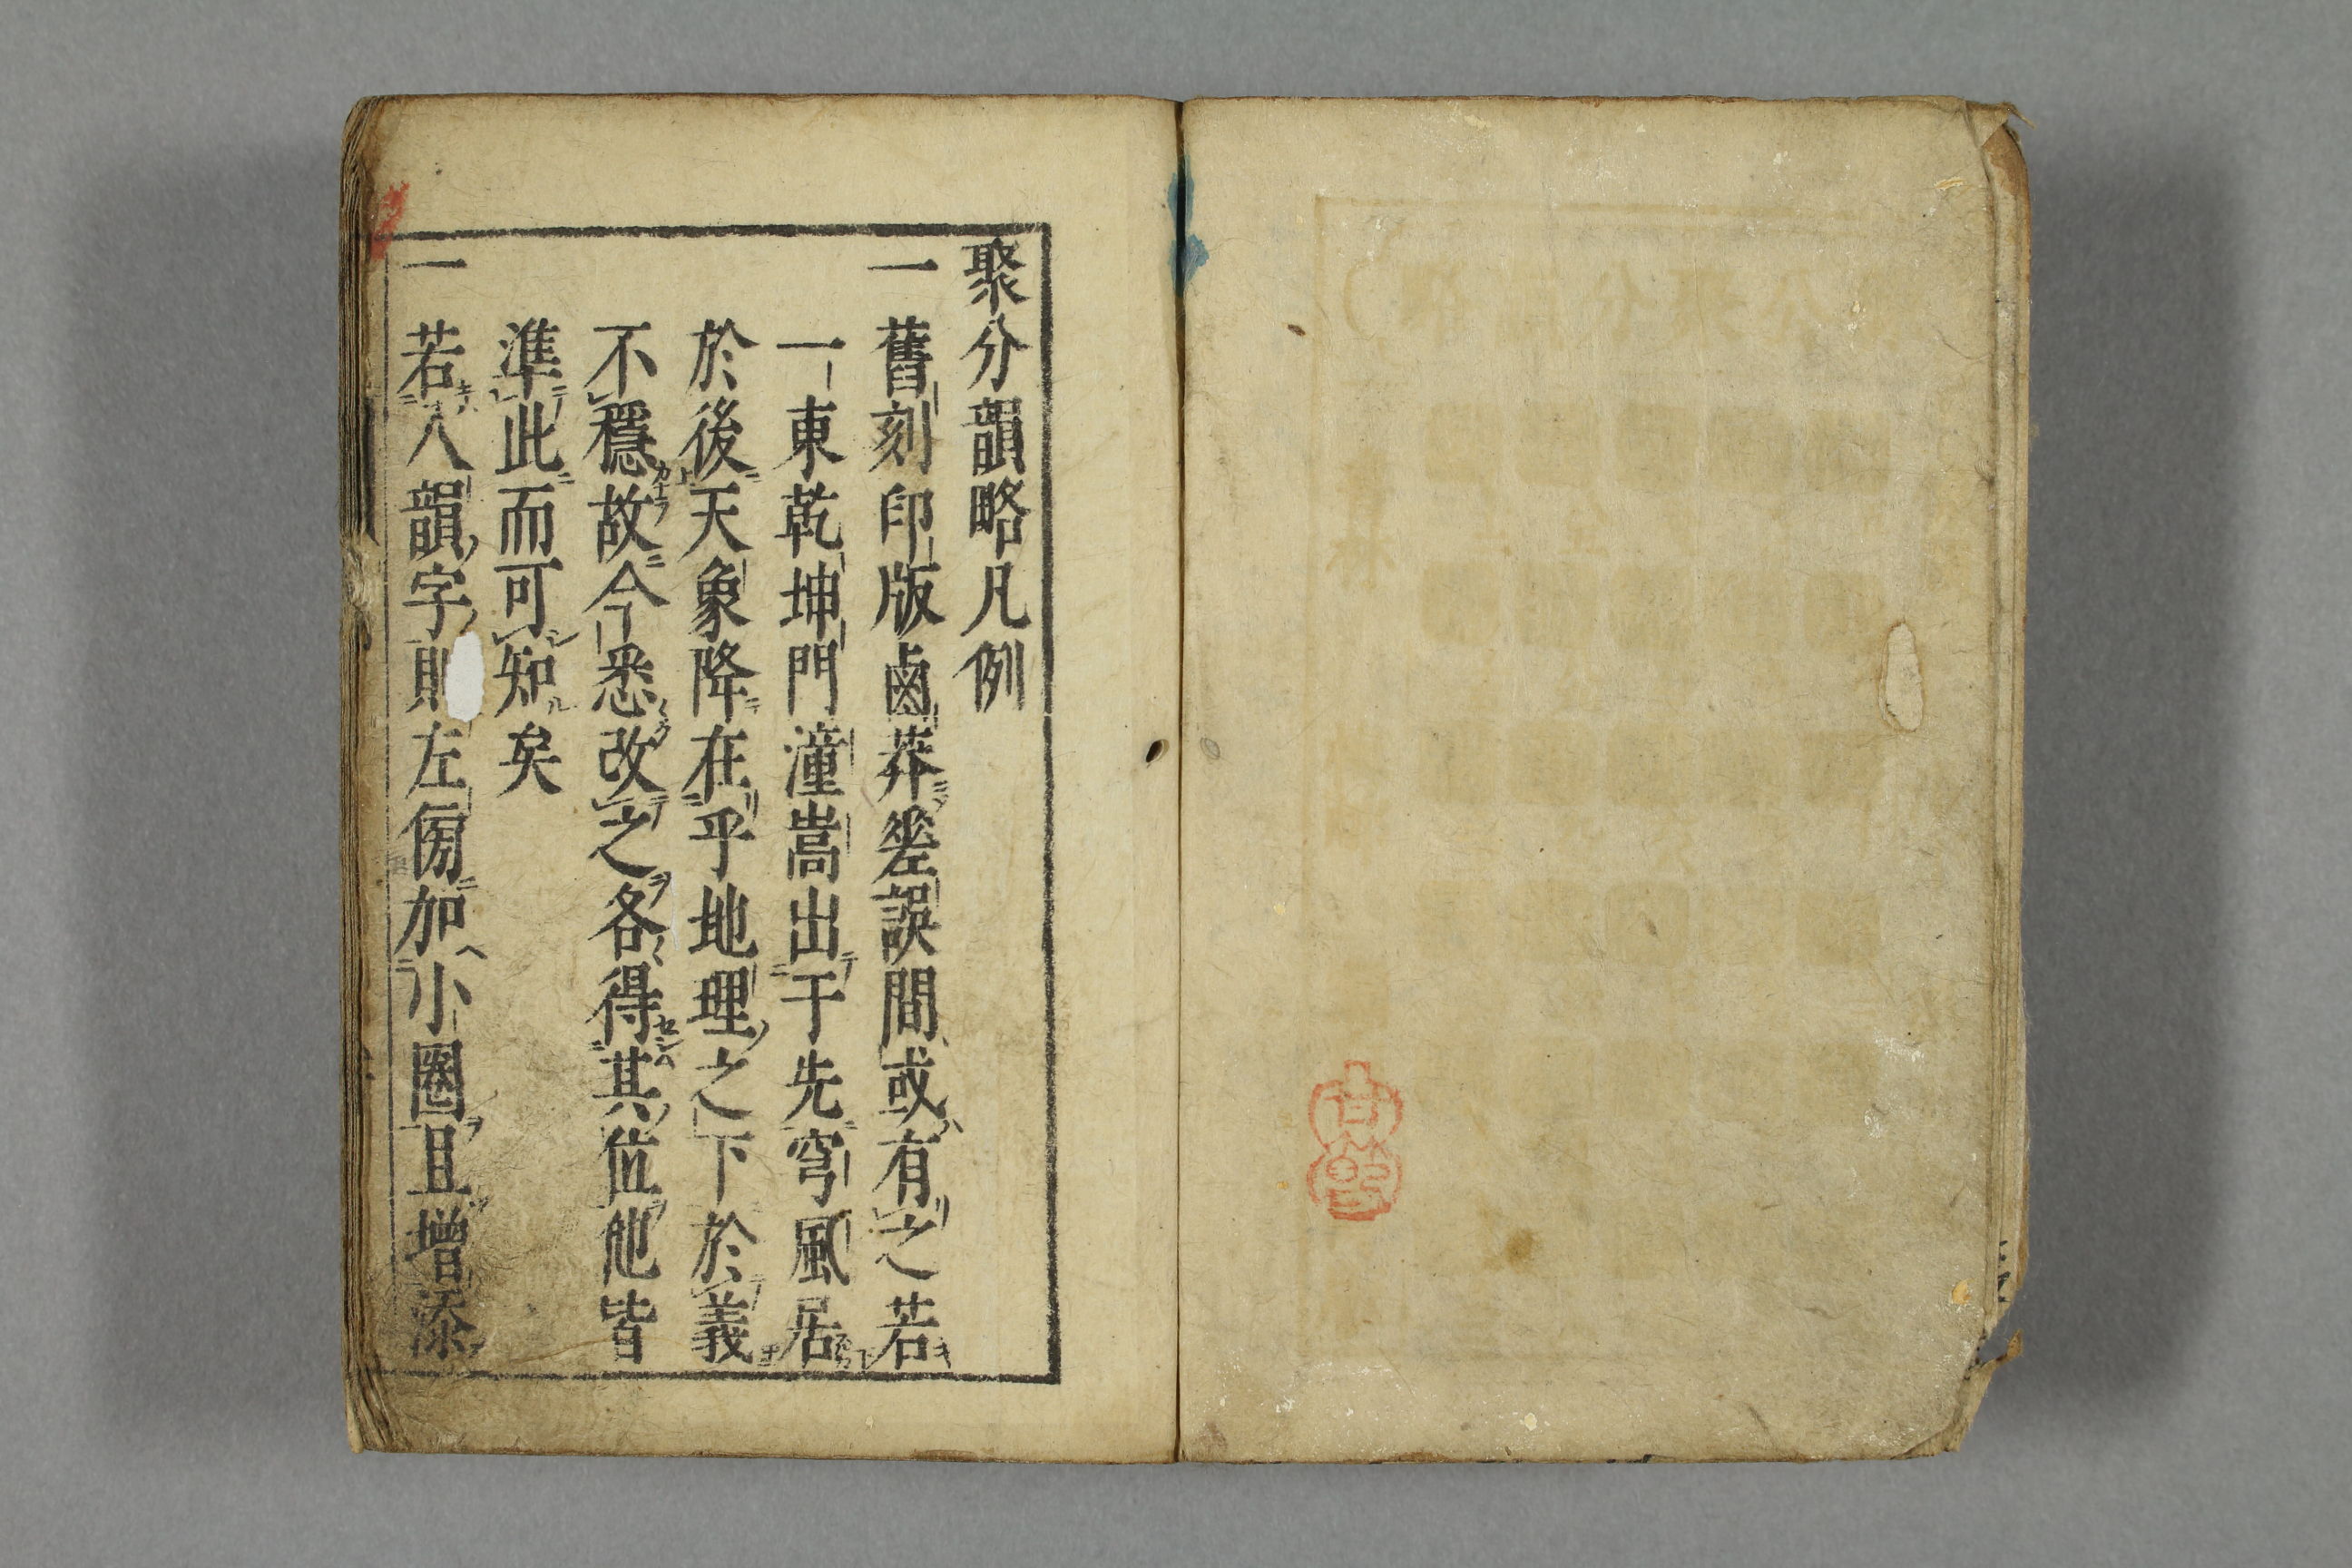 聚分韻略凡例
一 舊刻印版鹵莽差誤間或有之若
一東乾坤門潼嵩出于先穹風居
於後天象降在乎地理之下於義
不穩故今悉改之各得其位他皆
準此而可知矣
一 若八韻字則左傍加小圈且增添